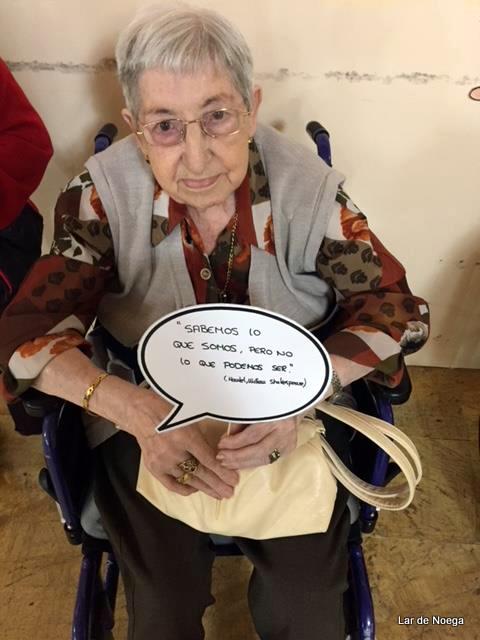 "SABEMOS LO
QUE SOMOS, PERO NO
LO QUE PODEMOS SER."
(Hamlet, William Shakespeare)
Lar de Noega